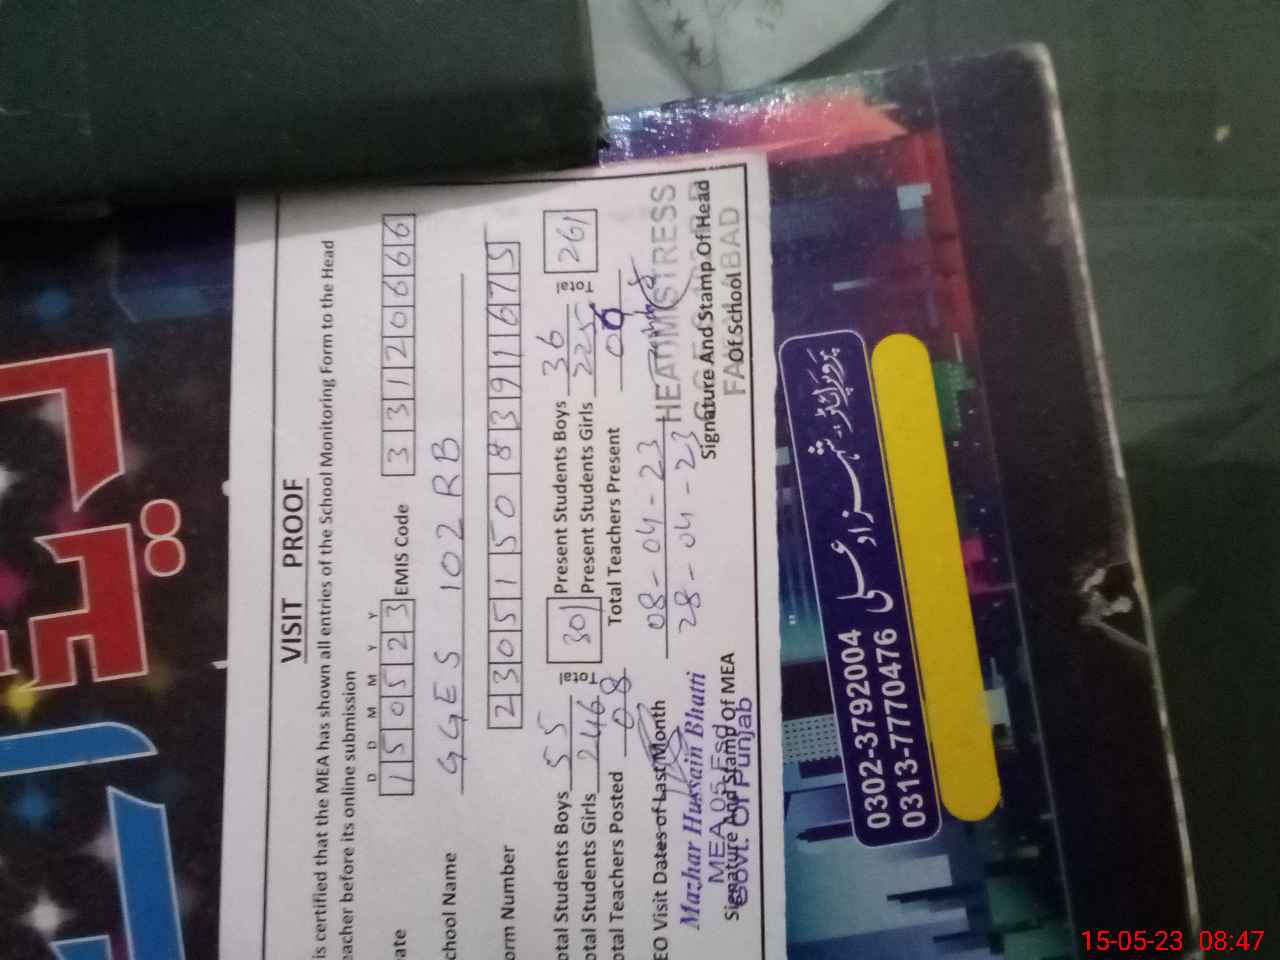 VISIT PROOF
is certified that the MEA has shown all entries of the School Monitoring Form to the Head
eacher before its online submission
D D M M Y Y
ate 150523 EMIS Code 33120666
chool Name GGES 102 RB
orm Number 23051508391675
otal Students Boys 55 Total 301 Present Students Boys 36 Total 261
otal Students Girls 246 Present Students Girls 225
otal Teachers Posted 08 Total Teachers Present 06
EO Visit Dates of Last Month 08-04-23
28-04-23
HEADMISTRESS
Mazhar Hussain Bhatti
MEA 05 Fsd
Signature And Stamp of MEA
Govt. Of Punjab
Signature And Stamp Of Head
Of School
پروپرائٹر۔ شہزاد علی
0302-3792004
0313-7770476
15-05-23 08:47